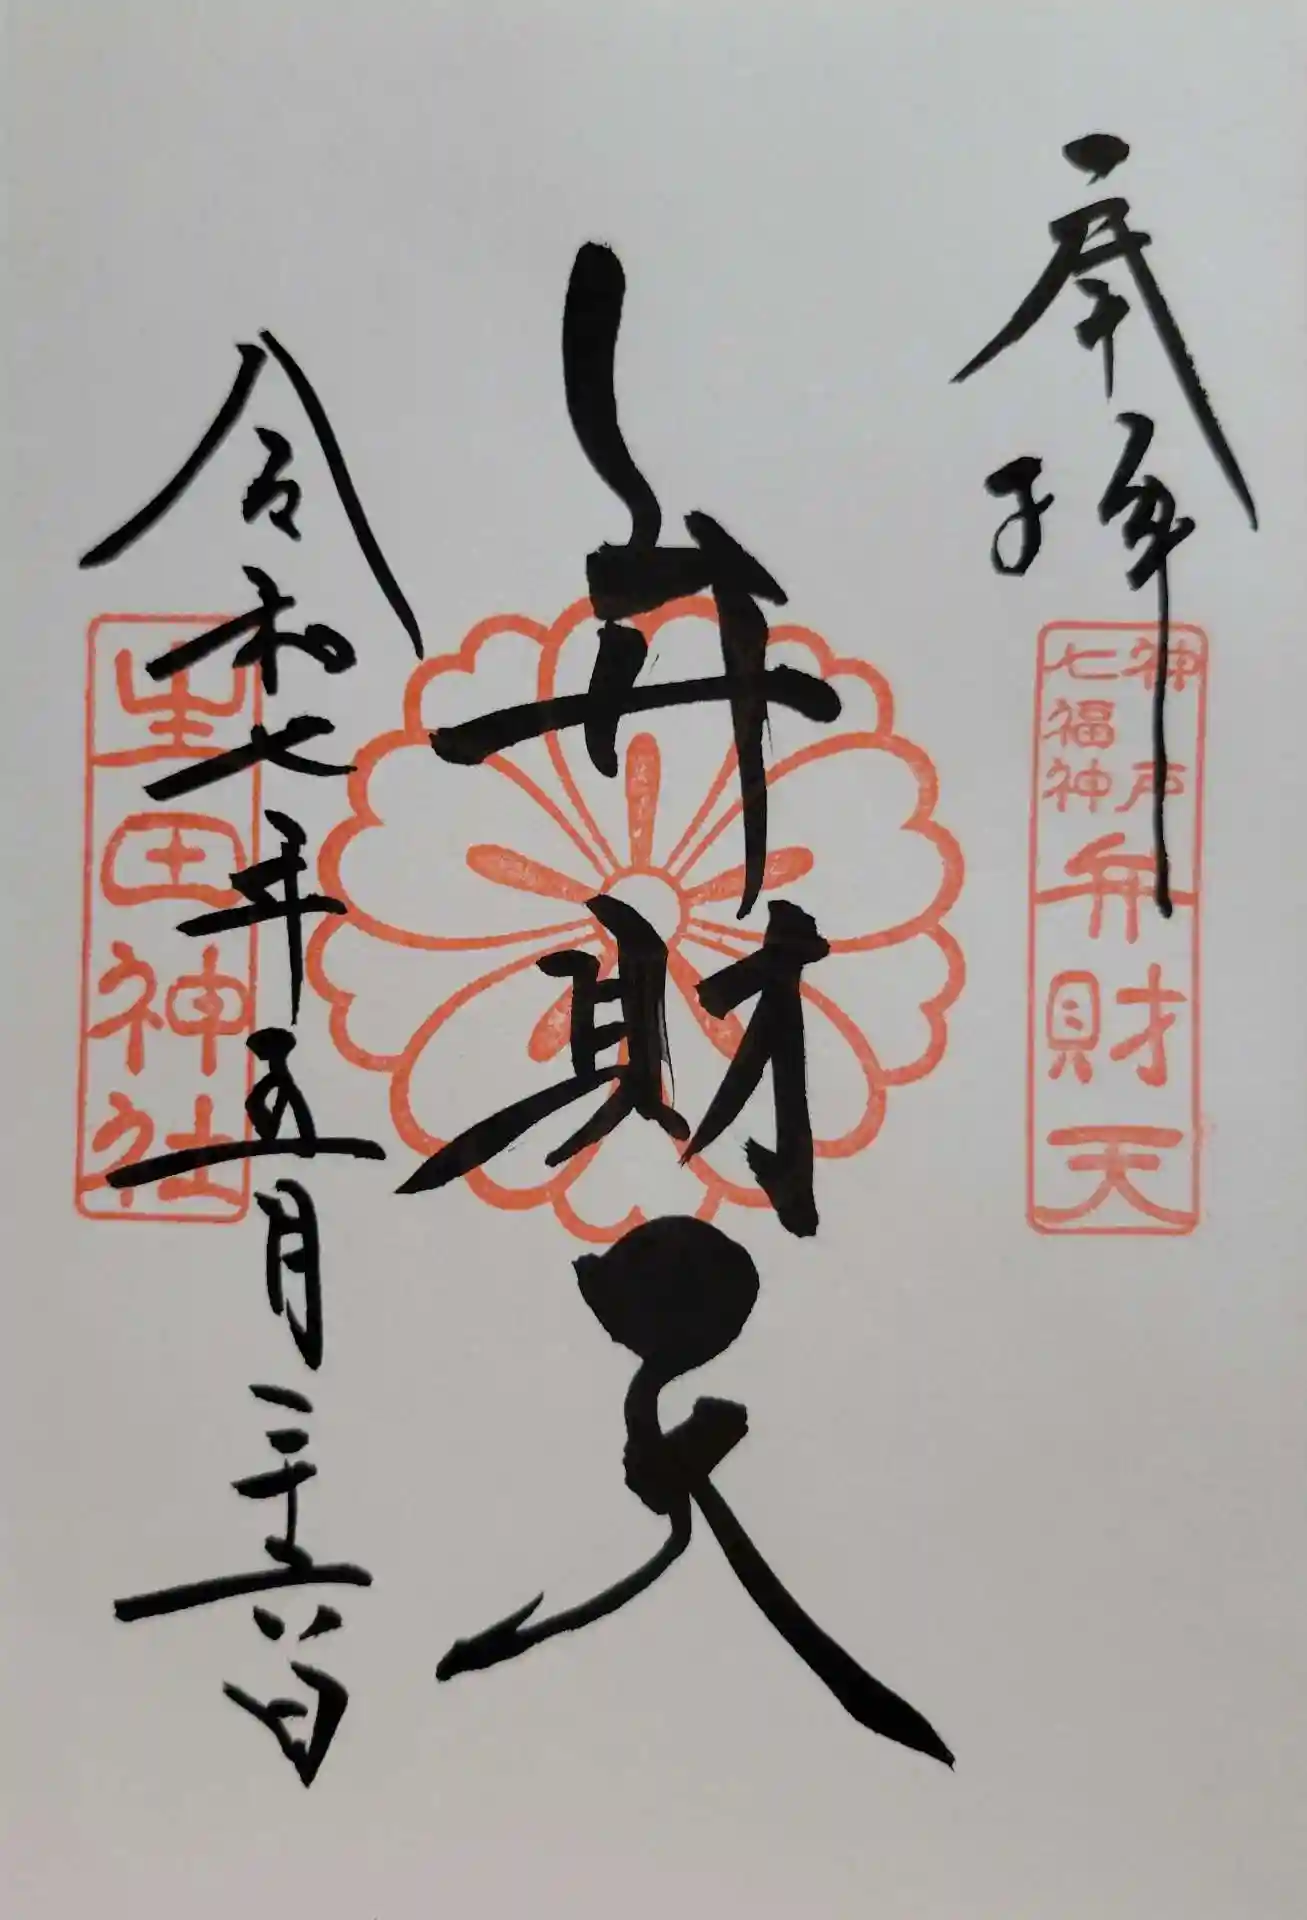 奉拝
神戸
七福神
弁財天
弁財天
令和七年五月二十六日
生田神社